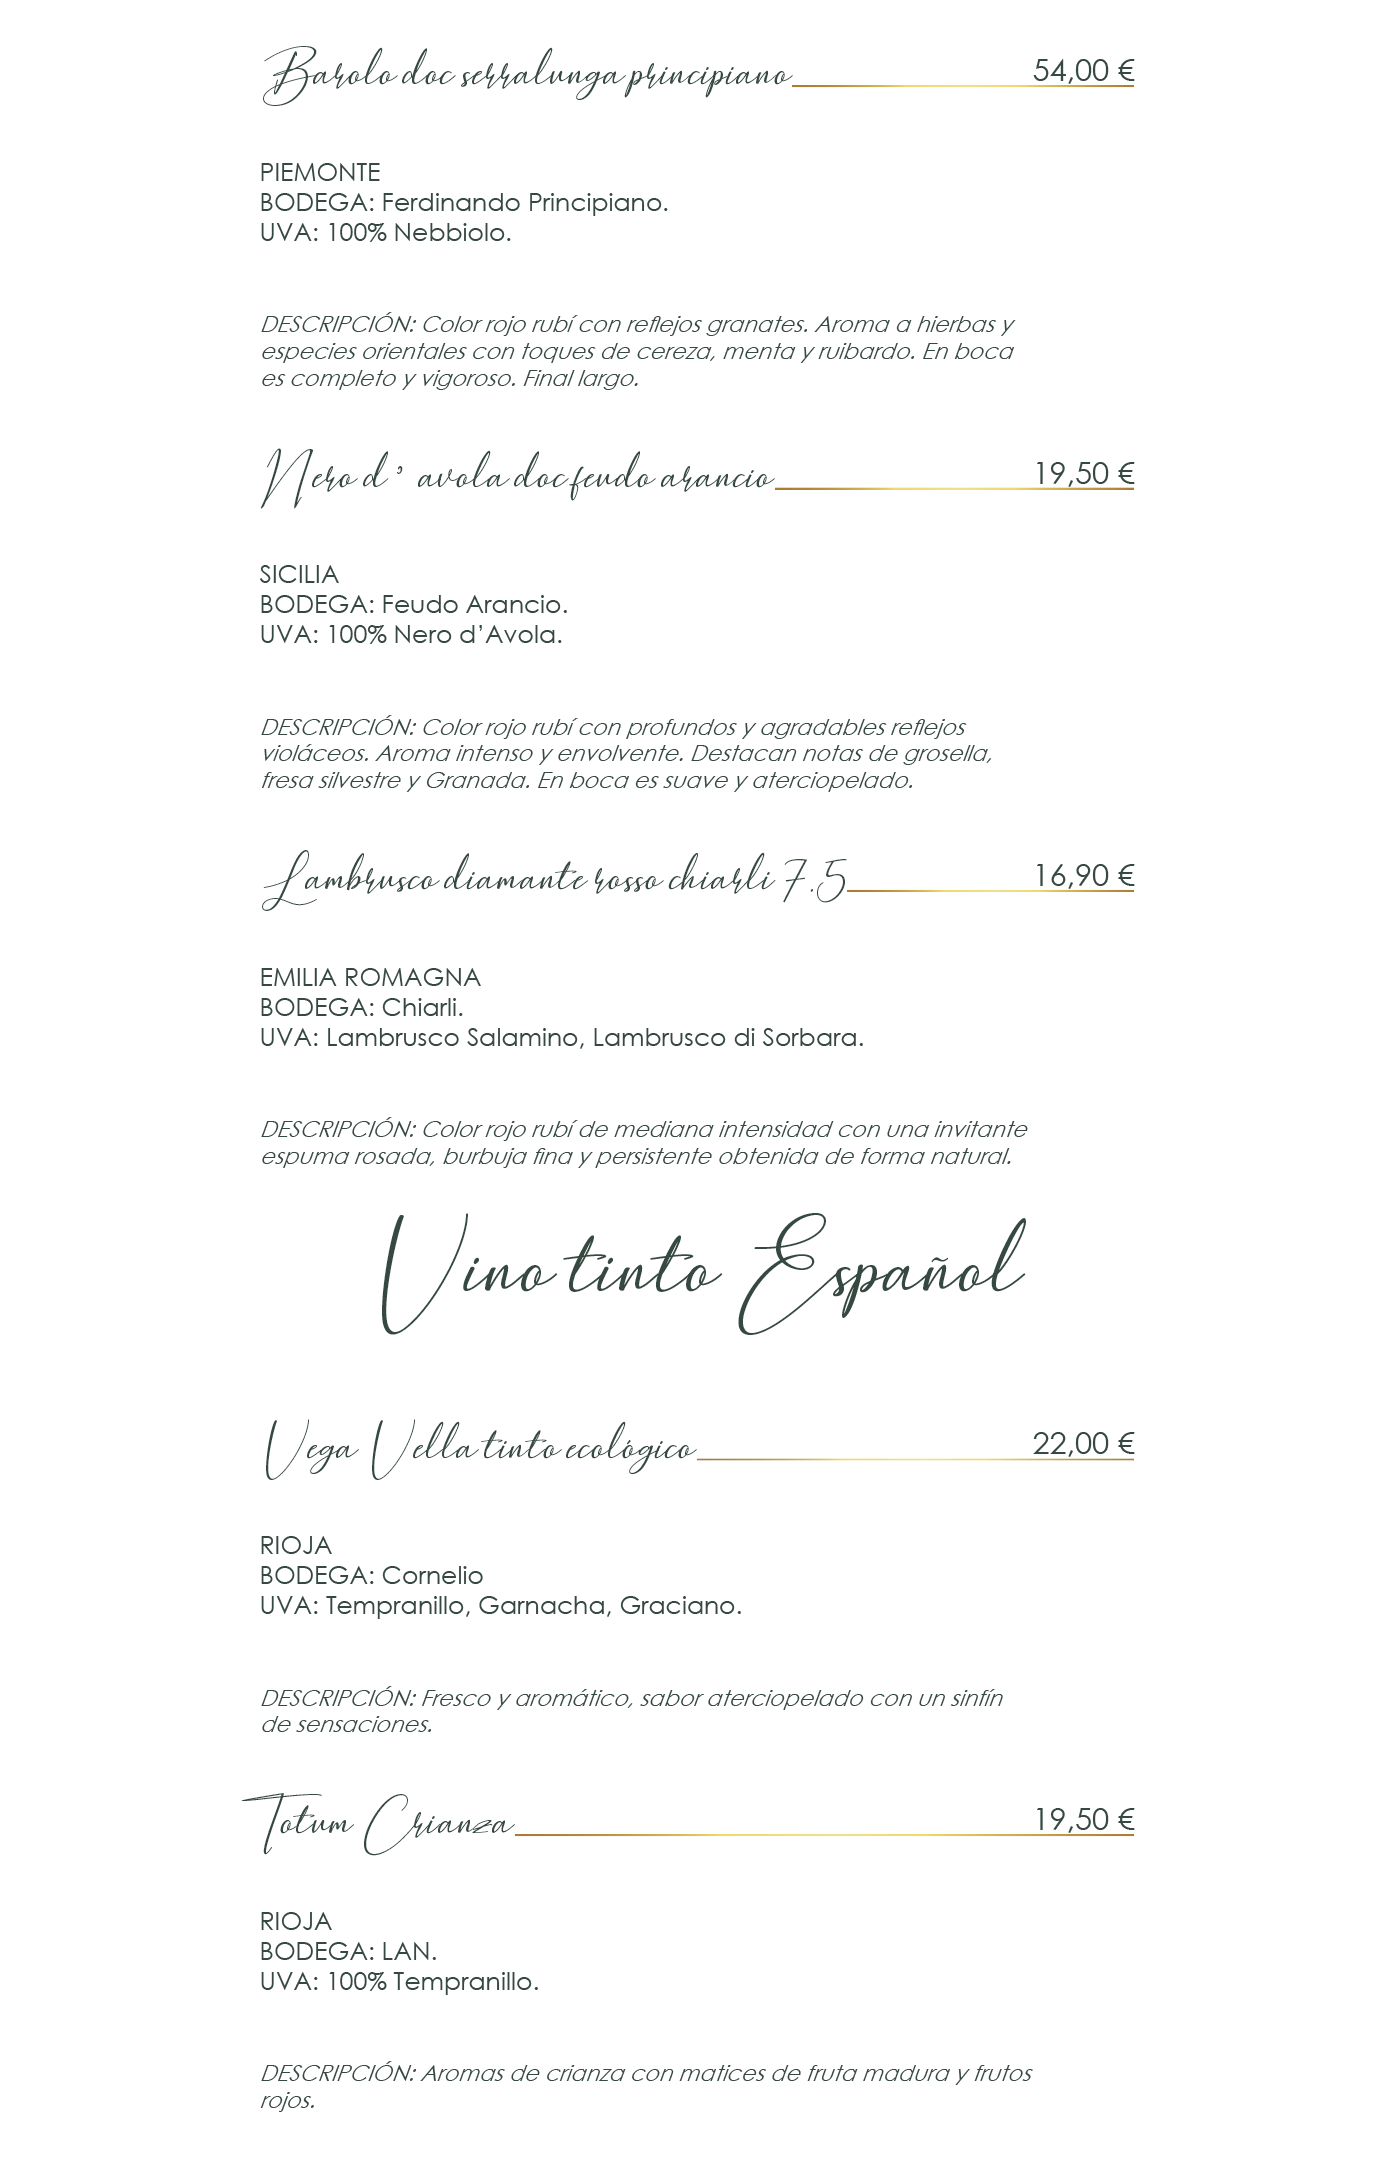 Barolo doc serralunga principiano 54,00 €
PIEMONTE
BODEGA: Ferdinando Principiano.
UVA: 100% Nebbiolo.
DESCRIPCIÓN: Color rojo rubí con reflejos granates. Aroma a hierbas y
especies orientales con toques de cereza, menta y ruibardo. En boca
es completo y vigoroso. Final largo.
Nero d’ avola doc feudo arancio 19,50 €
SICILIA
BODEGA: Feudo Arancio.
UVA: 100% Nero d’Avola.
DESCRIPCIÓN: Color rojo rubí con profundos y agradables reflejos
violáceos. Aroma intenso y envolvente. Destacan notas de grosella,
fresa silvestre y Granada. En boca es suave y aterciopelado.
Lambrusco diamante rosso chiarli 7.5 16,90 €
EMILIA ROMAGNA
BODEGA: Chiarli.
UVA: Lambrusco Salamino, Lambrusco di Sorbara.
DESCRIPCIÓN: Color rojo rubí de mediana intensidad con una invitante
espuma rosada, burbuja fina y persistente obtenida de forma natural.
Vino tinto Español
Vega Vella tinto ecológico 22,00 €
RIOJA
BODEGA: Cornelio
UVA: Tempranillo, Garnacha, Graciano.
DESCRIPCIÓN: Fresco y aromático, sabor aterciopelado con un sinfín
de sensaciones.
Totum Crianza 19,50 €
RIOJA
BODEGA: LAN.
UVA: 100% Tempranillo.
DESCRIPCIÓN: Aromas de crianza con matices de fruta madura y frutos
rojos.